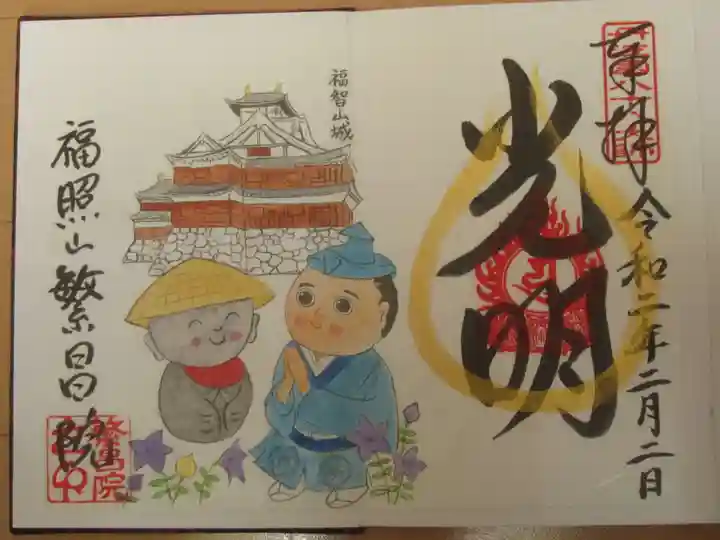 奉拝
令和二年二月二日
光明
福智山城
福照山繁昌院
繁昌院